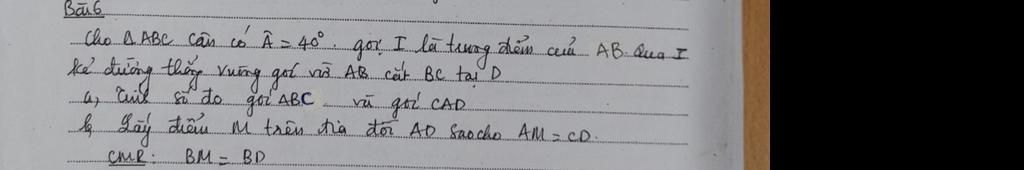 Bài 6
Cho Δ ABC cân có Â = 40°. gọi I là trung điểm của AB. Qua I
kẻ đường thẳng vuông góc với AB cắt BC tại D
a, Tính số đo góc ABC và góc CAD
b, Lấy điểm M trên tia đối AD sao cho AM = CD.
CMR: BM = BD